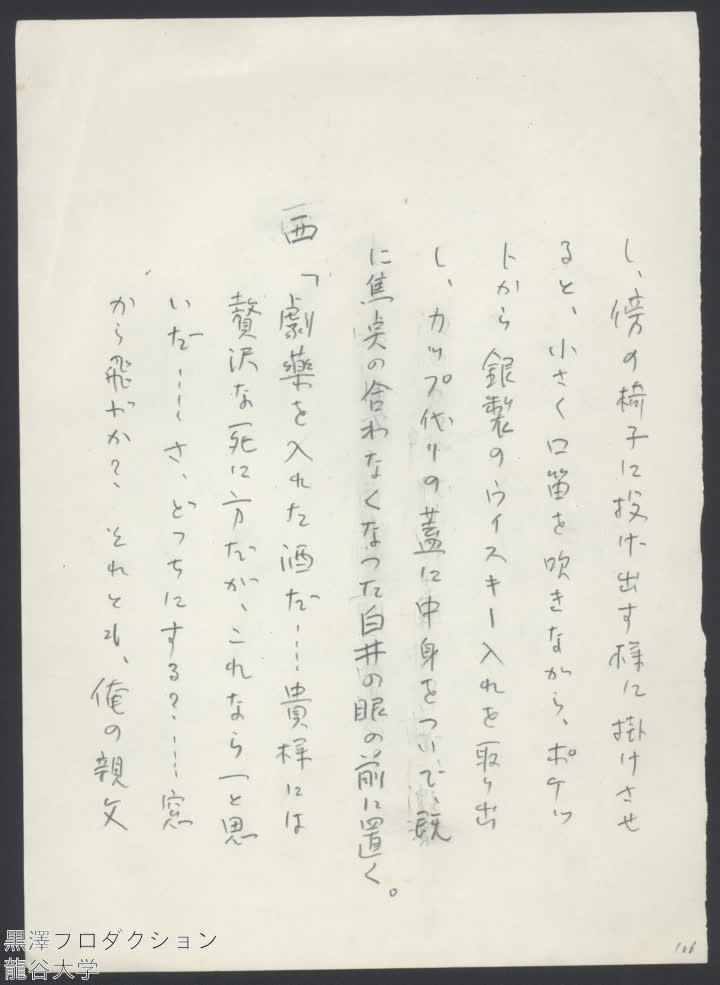 し、傍の椅子に投げ出す様に掛けさせ
ると、小さく口笛を吹きながら、ポケッ
トから銀製のウイスキー入れを取り出
し、カップ代りの蓋に中身をついで、既
に焦点の合わなくなった白井の眼の前に置く。
西「劇薬を入れた酒だ……貴様には
贅沢な死に方だが、これなら――と思
いだ……さ、どっちにする?……窓
から飛ぶか? それとも、俺の親父
106
黒澤プロダクション
龍谷大学